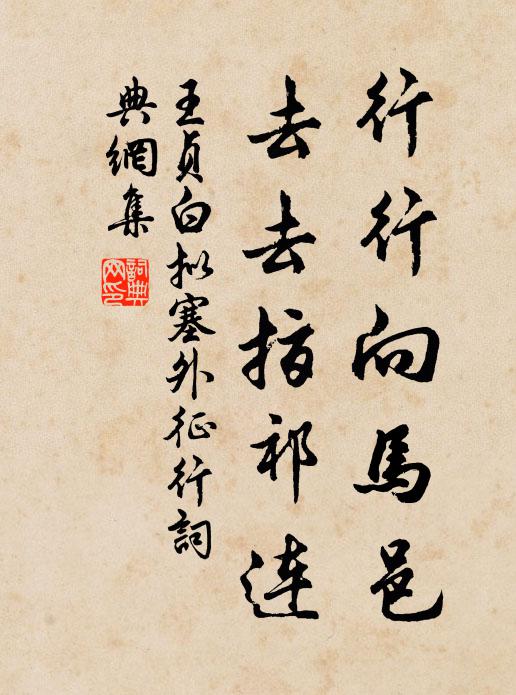 行行向馬邑
去去指祁連
王貞白拟塞外征行詞
典網集
詞典
网印